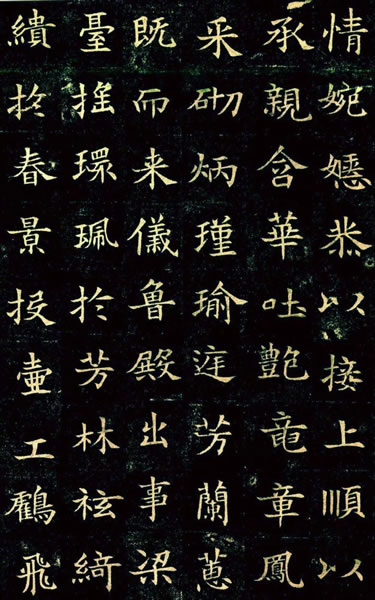 情婉嫕恭以接上順以
承親含華吐艷竜章鳳
采砌炳瑾瑜庭芳蘭蕙
既而来儀魯殿出事梁
臺摇環珮扵芳林袨綺
繢扵春景投壷工鸖飛